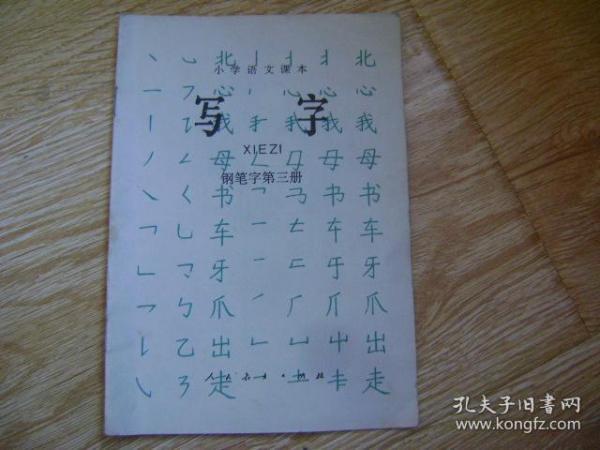 北 北
小学语文课本
心 心
写字
我 我
XIEZI
母 母
钢笔字第三册
书 书
车 车
牙 牙
爪 爪
出 出
人民教育出版社
走 走
孔夫子旧書网
www.kongfz.com